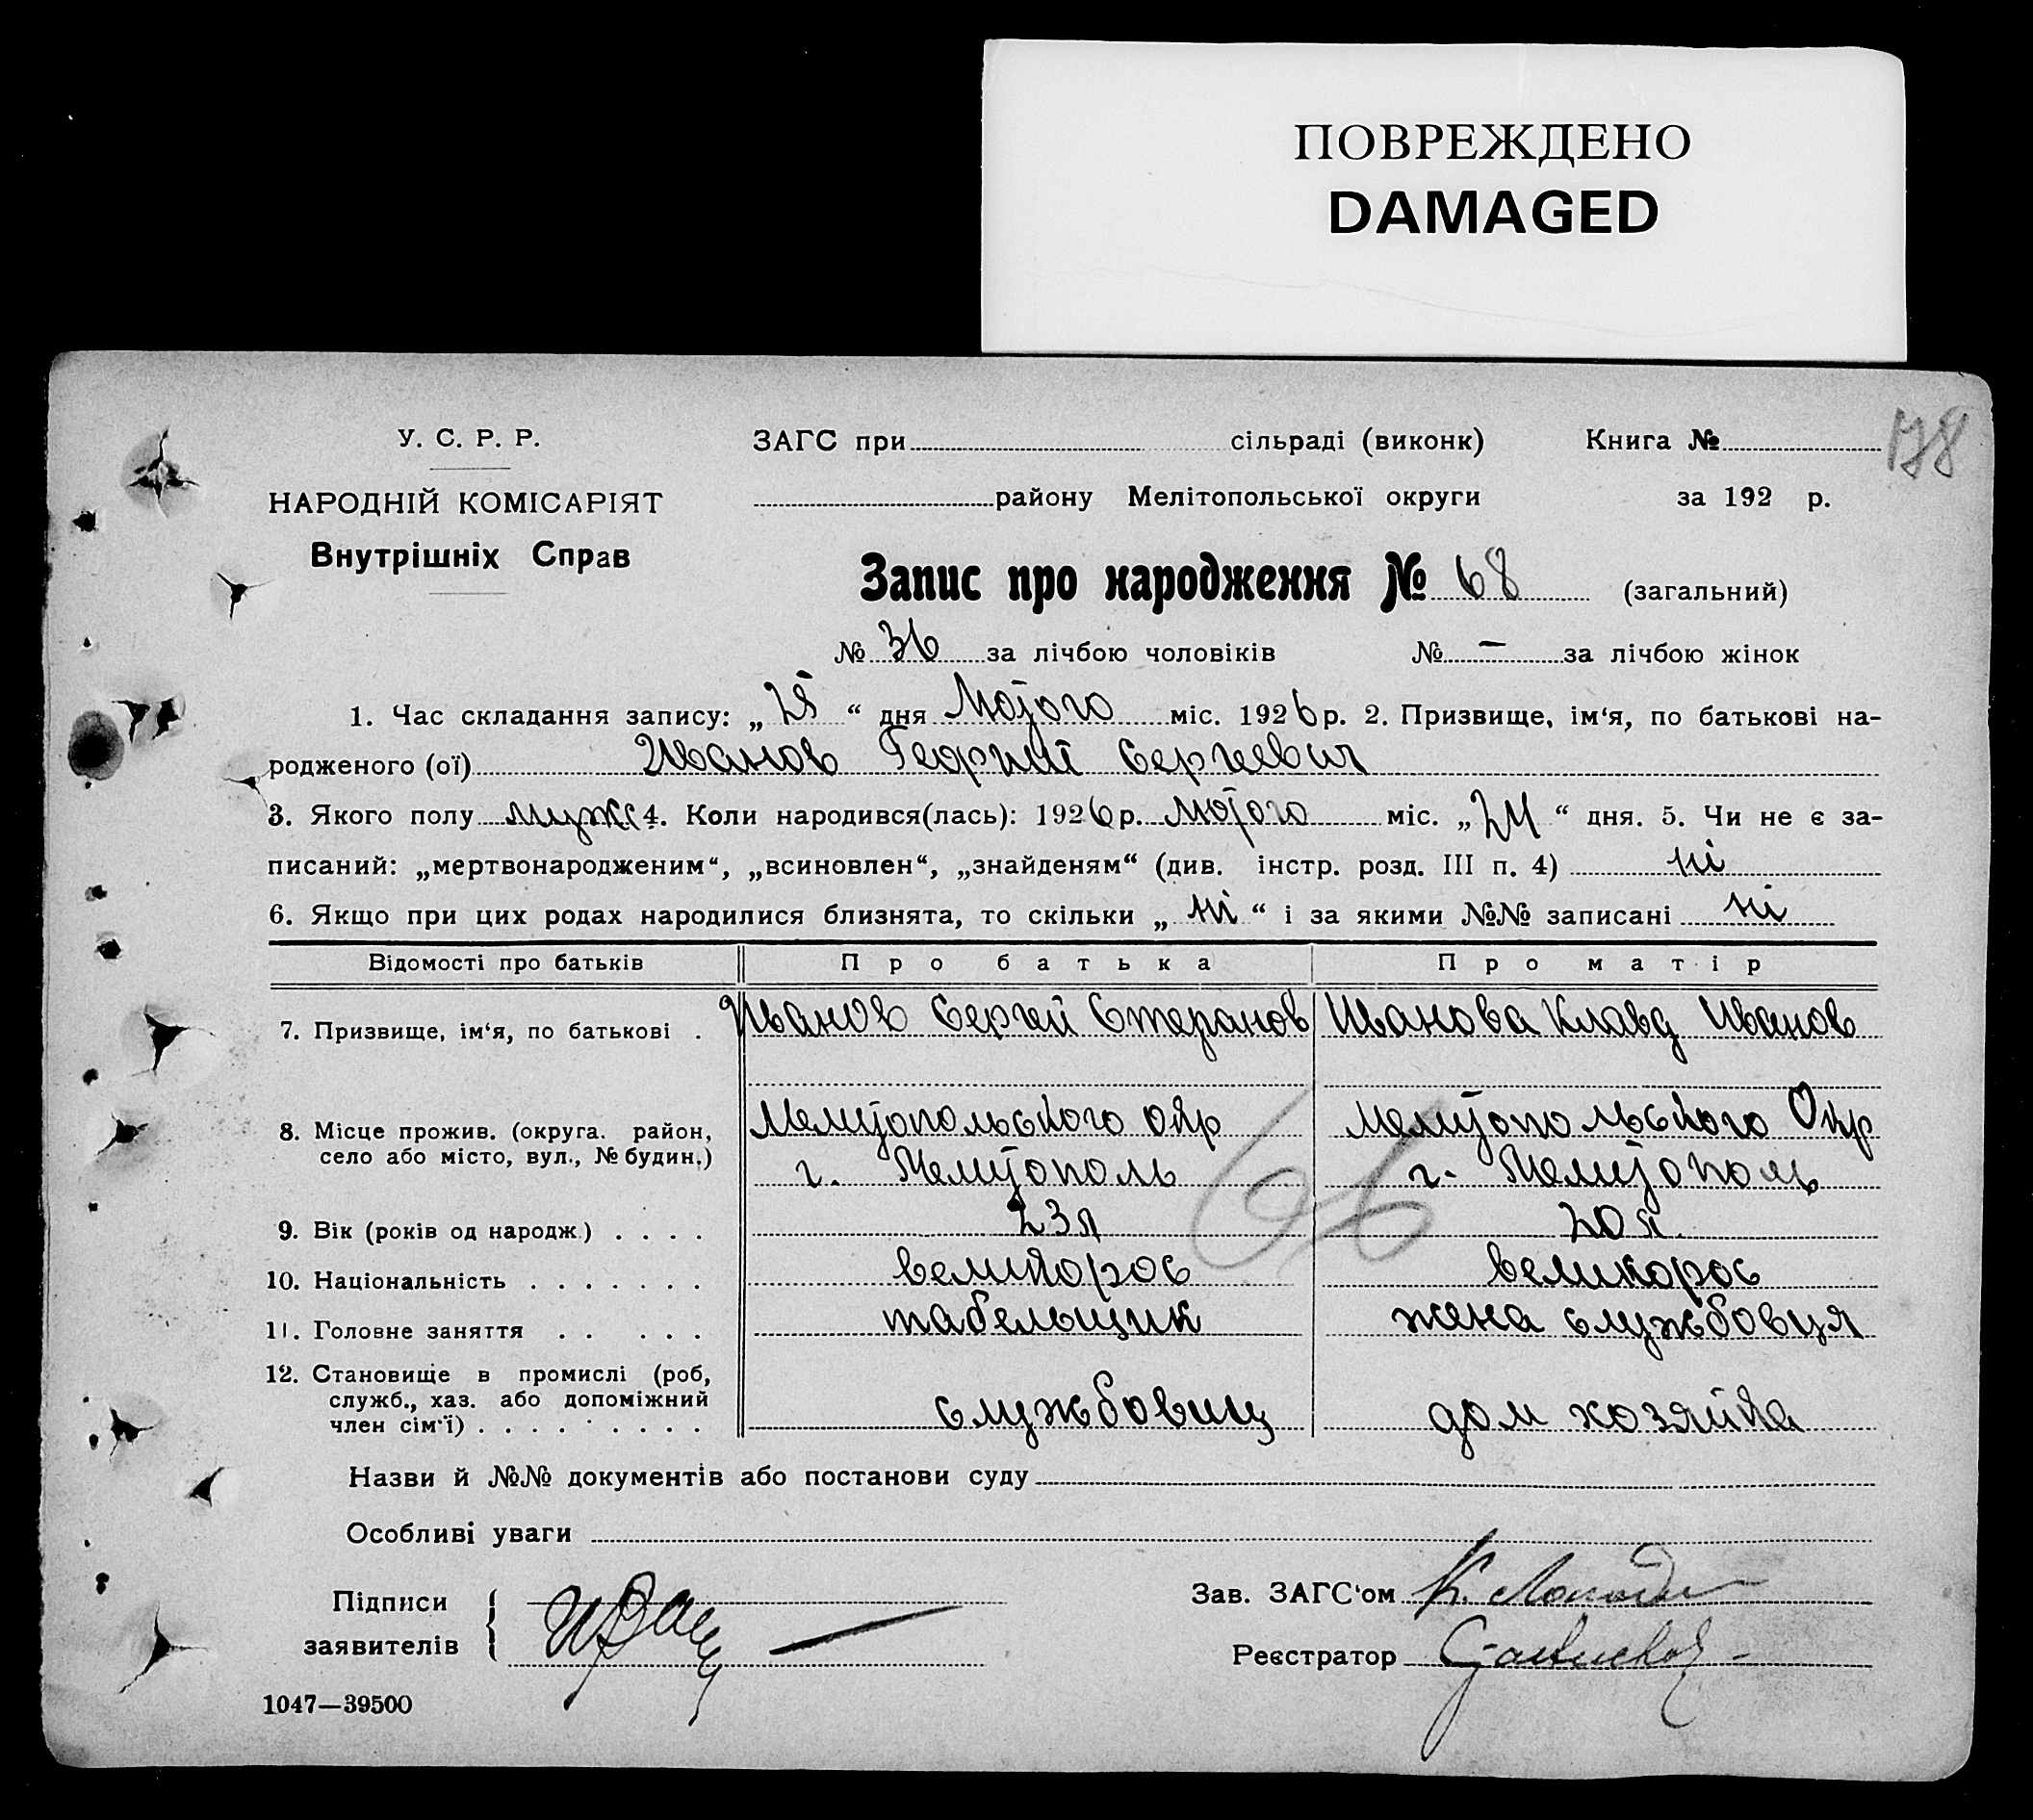 ПОВРЕЖДЕНО
DAMAGED
178
У. С. Р. Р.
НАРОДНІЙ КОМІСАРІЯТ
Внутрішніх Справ
ЗАГС при сільраді (виконк) Книга №
району Мелітопольської округи за 192 р.
Запис про народження № 68 (загальний)
№ 36 за лічбою чоловіків № — за лічбою жінок
1. Час складання запису: „ “ дня Лютого міс. 1926 р. 2. Призвище, ім‘я, по батькові на-
родженого (ої) Иванов Георгий Сергеевич
3. Якого полу муж 4. Коли народився(лась): 1926 р. лютого міс. „24“ дня. 5. Чи не є за-
писаний: „мертвонародженим“, „всиновлен“, „знайденям“ (див. інстр. розд. III п. 4) ні
6. Якщо при цих родах народилися близнята, то скільки „ні“ і за якими №№ записані ні
Відомості про батьків Про батька Про матір
7. Призвище, ім‘я, по батькові . Иванов Сергей Степанов Иванова Клавд Иванов
8. Місце прожив. (округа. район, Мелитопольского окр Мелитопольского Окр
село або місто, вул., № будин.) г. Мелитополь г. Мелитополь
9. Вік (років од народж.) . . . . 23 л 20 л.
66
10. Національність . . . . . . . великорос великорос
11. Головне заняття . . . . . табельщик жена службовця
12. Становище в промислі (роб,
служб., хаз. або допоміжний службовиц дом хозяйка
член сім‘ї) . . . . . . . .
Назви й №№ документів або постанови суду
Особливі уваги
Підписи
заявителів
Зав. ЗАГС‘ом К.
Реєстратор
1047—39500